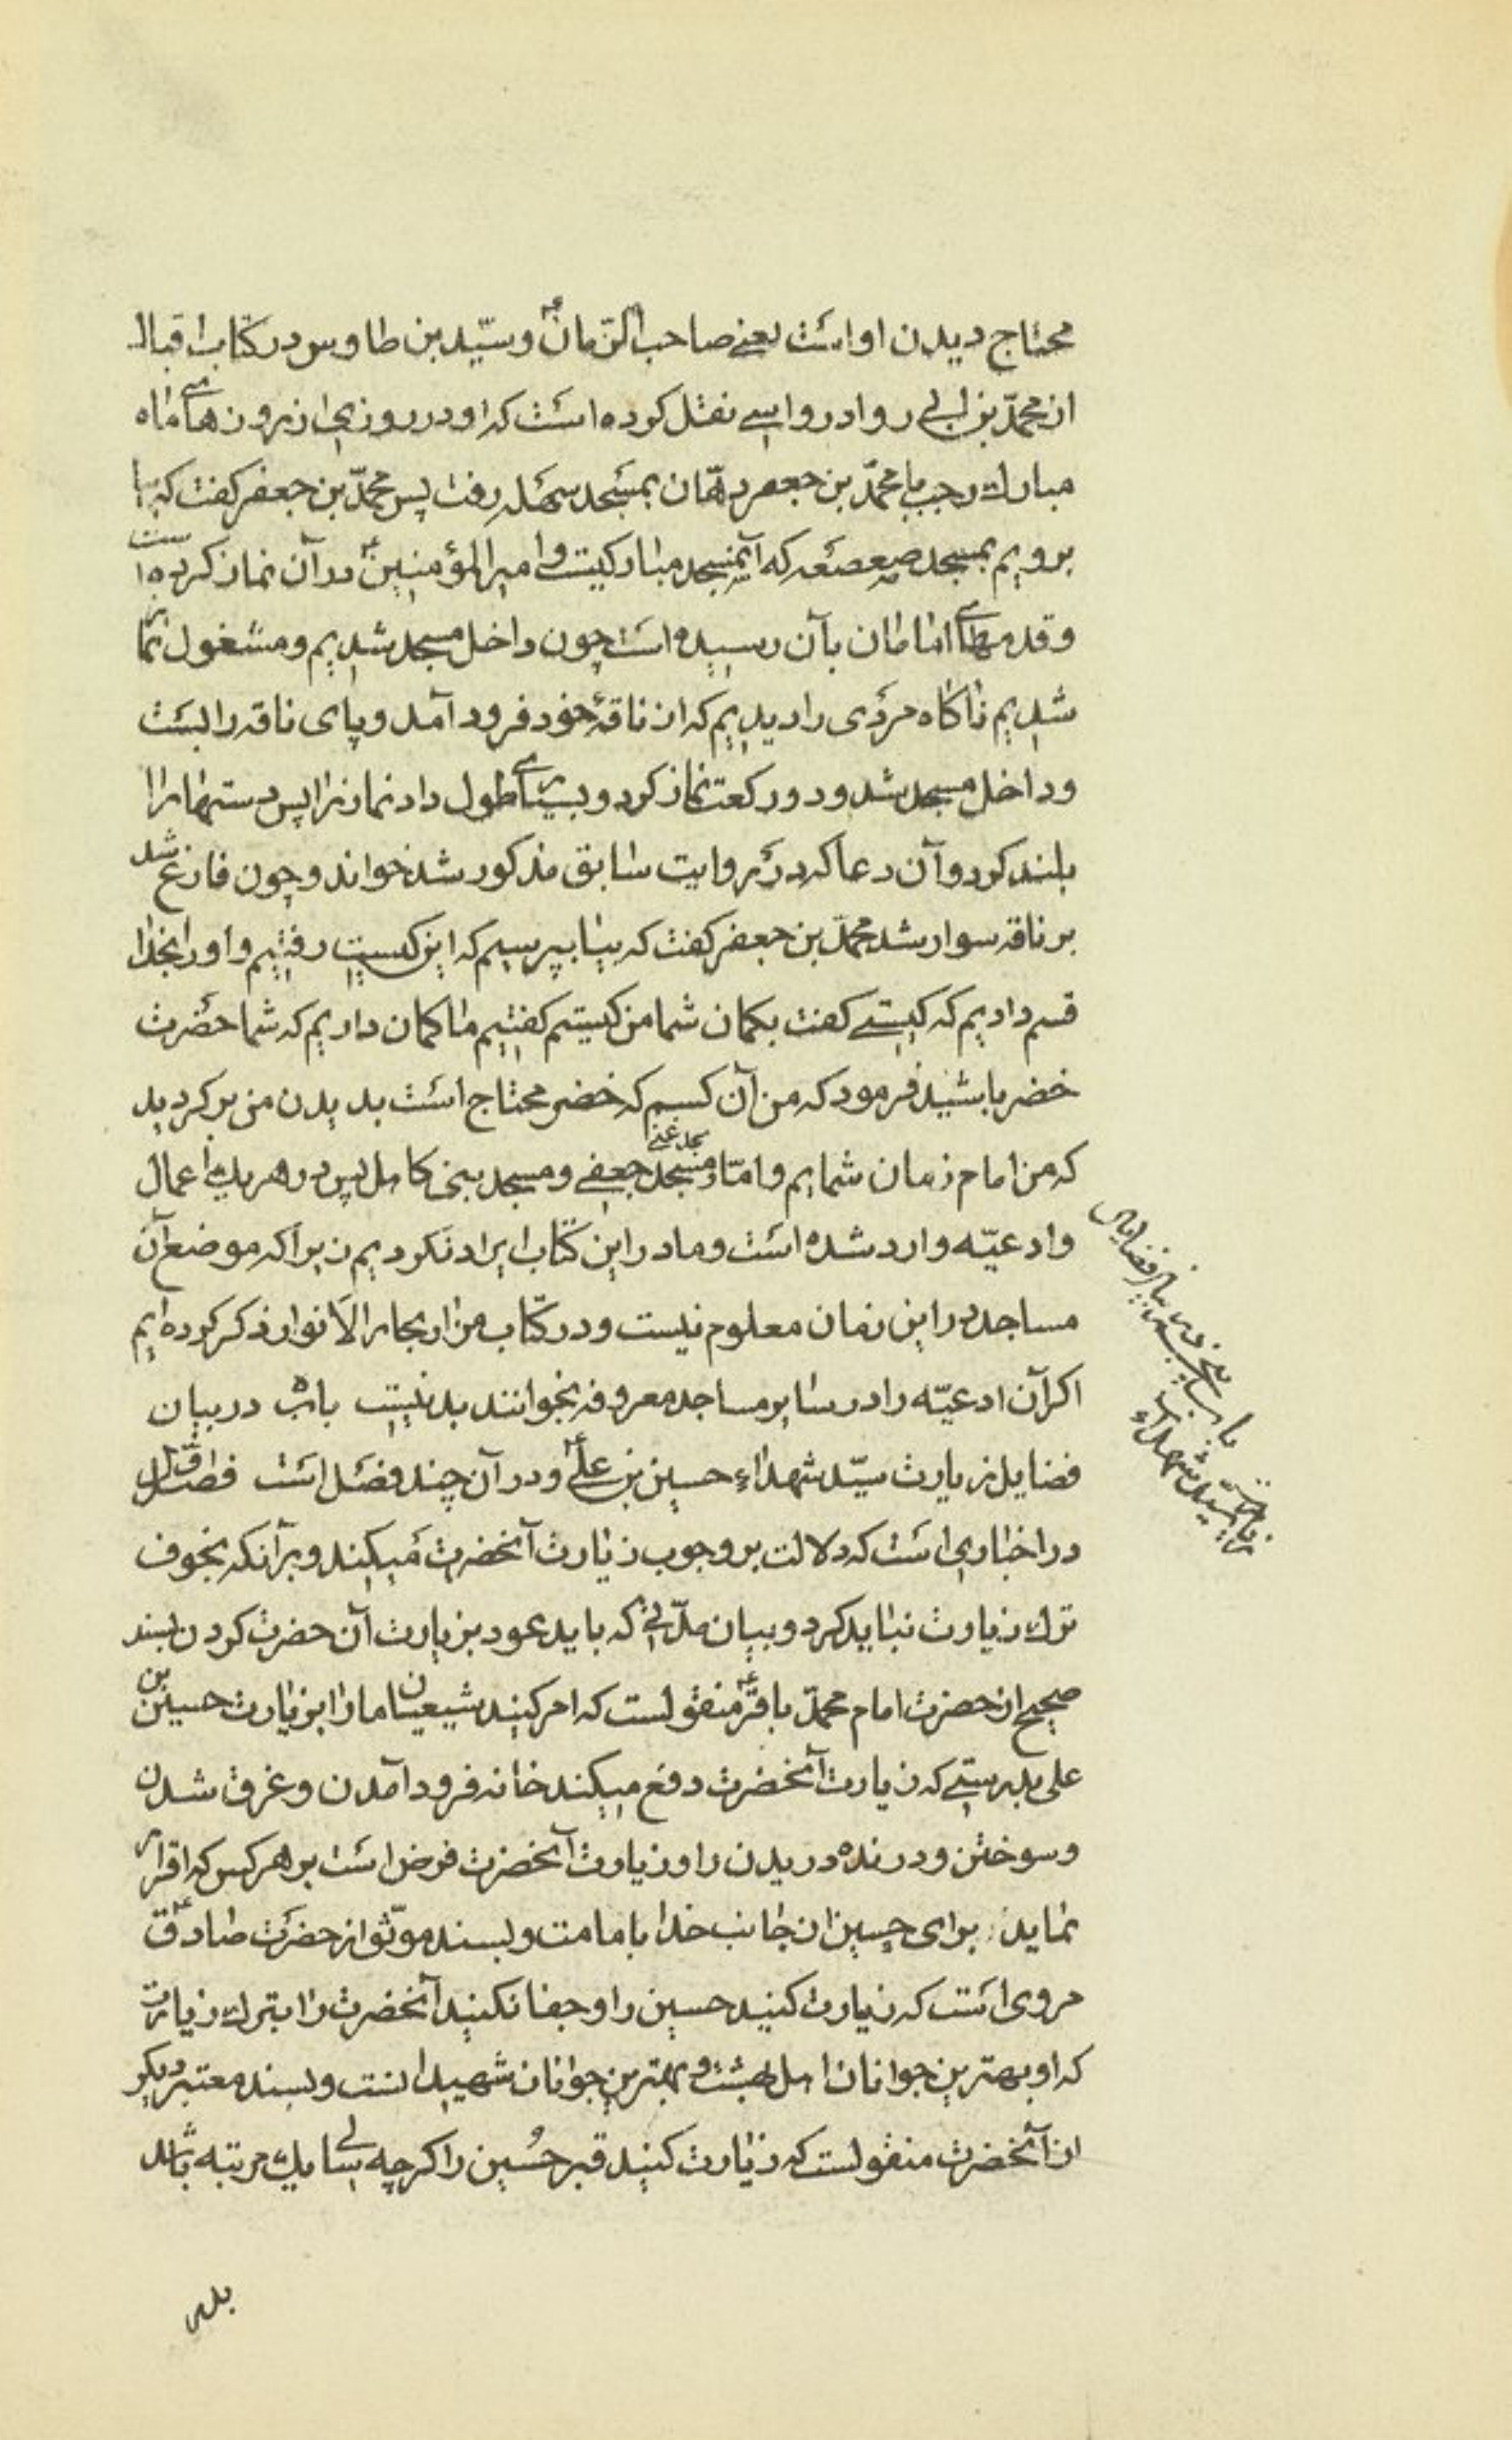 محتاج دیدن او است یعنی صاحب الزمانؑ و سیّد بن طاوس در کتاب اقبال
از محمّد بن ابی رواد رواسی نقل کرده است که او در روزی از روزهای ماه
مبارک رجب با محمّد بن جعفر دهّان بمسجد سهله رفت پس محمّد بن جعفر کفت که بیا
برویم بمسجد صعصعه که آن مسجد مبارکیست و امیر المؤمنینؑ در آن نماز کرده است
و قدمهای امامان بآن رسیده است چون داخل مسجد شدیم و مشغول نماز
شدیم ناکاه مردی را دیدیم که از ناقهٔ خود فرود آمد و پای ناقه را بست
و داخل مسجد شد و دو رکعت نماز کرد و بسیار طول داد نماز را پس دستها را
بلند کرد و آن دعا که در روایت سابق مذکور شد خواند و چون فارغ شد
بر ناقه سوار شد محمّد بن جعفر کفت که بیا بپرسیم که این کیست رفتیم و او را بخدا
قسم دادیم که کیستی کفت بکمان شما من کیستم کفتیم ما کمان داریم که شما حضرت
خضر باشید فرمود که من آن کسم که خضر محتاج است بدیدن من برکردید
که من امام زمان شمایم و امّا مسجد غنی و مسجد جعفی و مسجد بنی کاهل پس در هر یک اعمال
و ادعیّه وارد شده است و ما در این کتاب ایراد نکردیم زیرا که موضع آن
مساجد در این زمان معلوم نیست و در کتاب مزار بحار الانوار ذکر کرده ایم
اکر آن ادعیّه را در سایر مساجد معروفه بخوانند بد نیست باب در بیان
فضایل زیارت سیّد شهداء حسین بن علیؑ و در آن چند فصل است فصل اوّل
در اخباری است که دلالت بر وجوب زیارت آنحضرت میکند و بر آنکه بخوف
ترک زیارت نباید کرد و بیان مدّتی که باید عود بزیارت آن حضرت کردن بسند
صحیح از حضرت امام محمّد باقرؑ منقولست که امر کنید شیعیان ما را بزیارت حسین بن
علی بدرستی که زیارت آنحضرت دفع میکند خانه فرود آمدن و غرق شدن
و سوختن و درنده دریدن را و زیارت آنحضرت فرض است بر هر کس که اقرار
نماید برای حسین از جانب خدا بامامت و بسند موّثق از حضرت صادقؑ
مروی است که زیارت کنید حسین را و جفا نکنید آنحضرت را بترک زیارت
که او بهترین جوانان اهل بهشت و بهترین جوانان شهیدانست و بسند معتبر دیکر
از آنحضرت منقولست که زیارت کنید قبر حُسین را اکرچه سالی یک مرتبه باشد
باب پنجم در بیان فضایل
زیارت سید شهداء